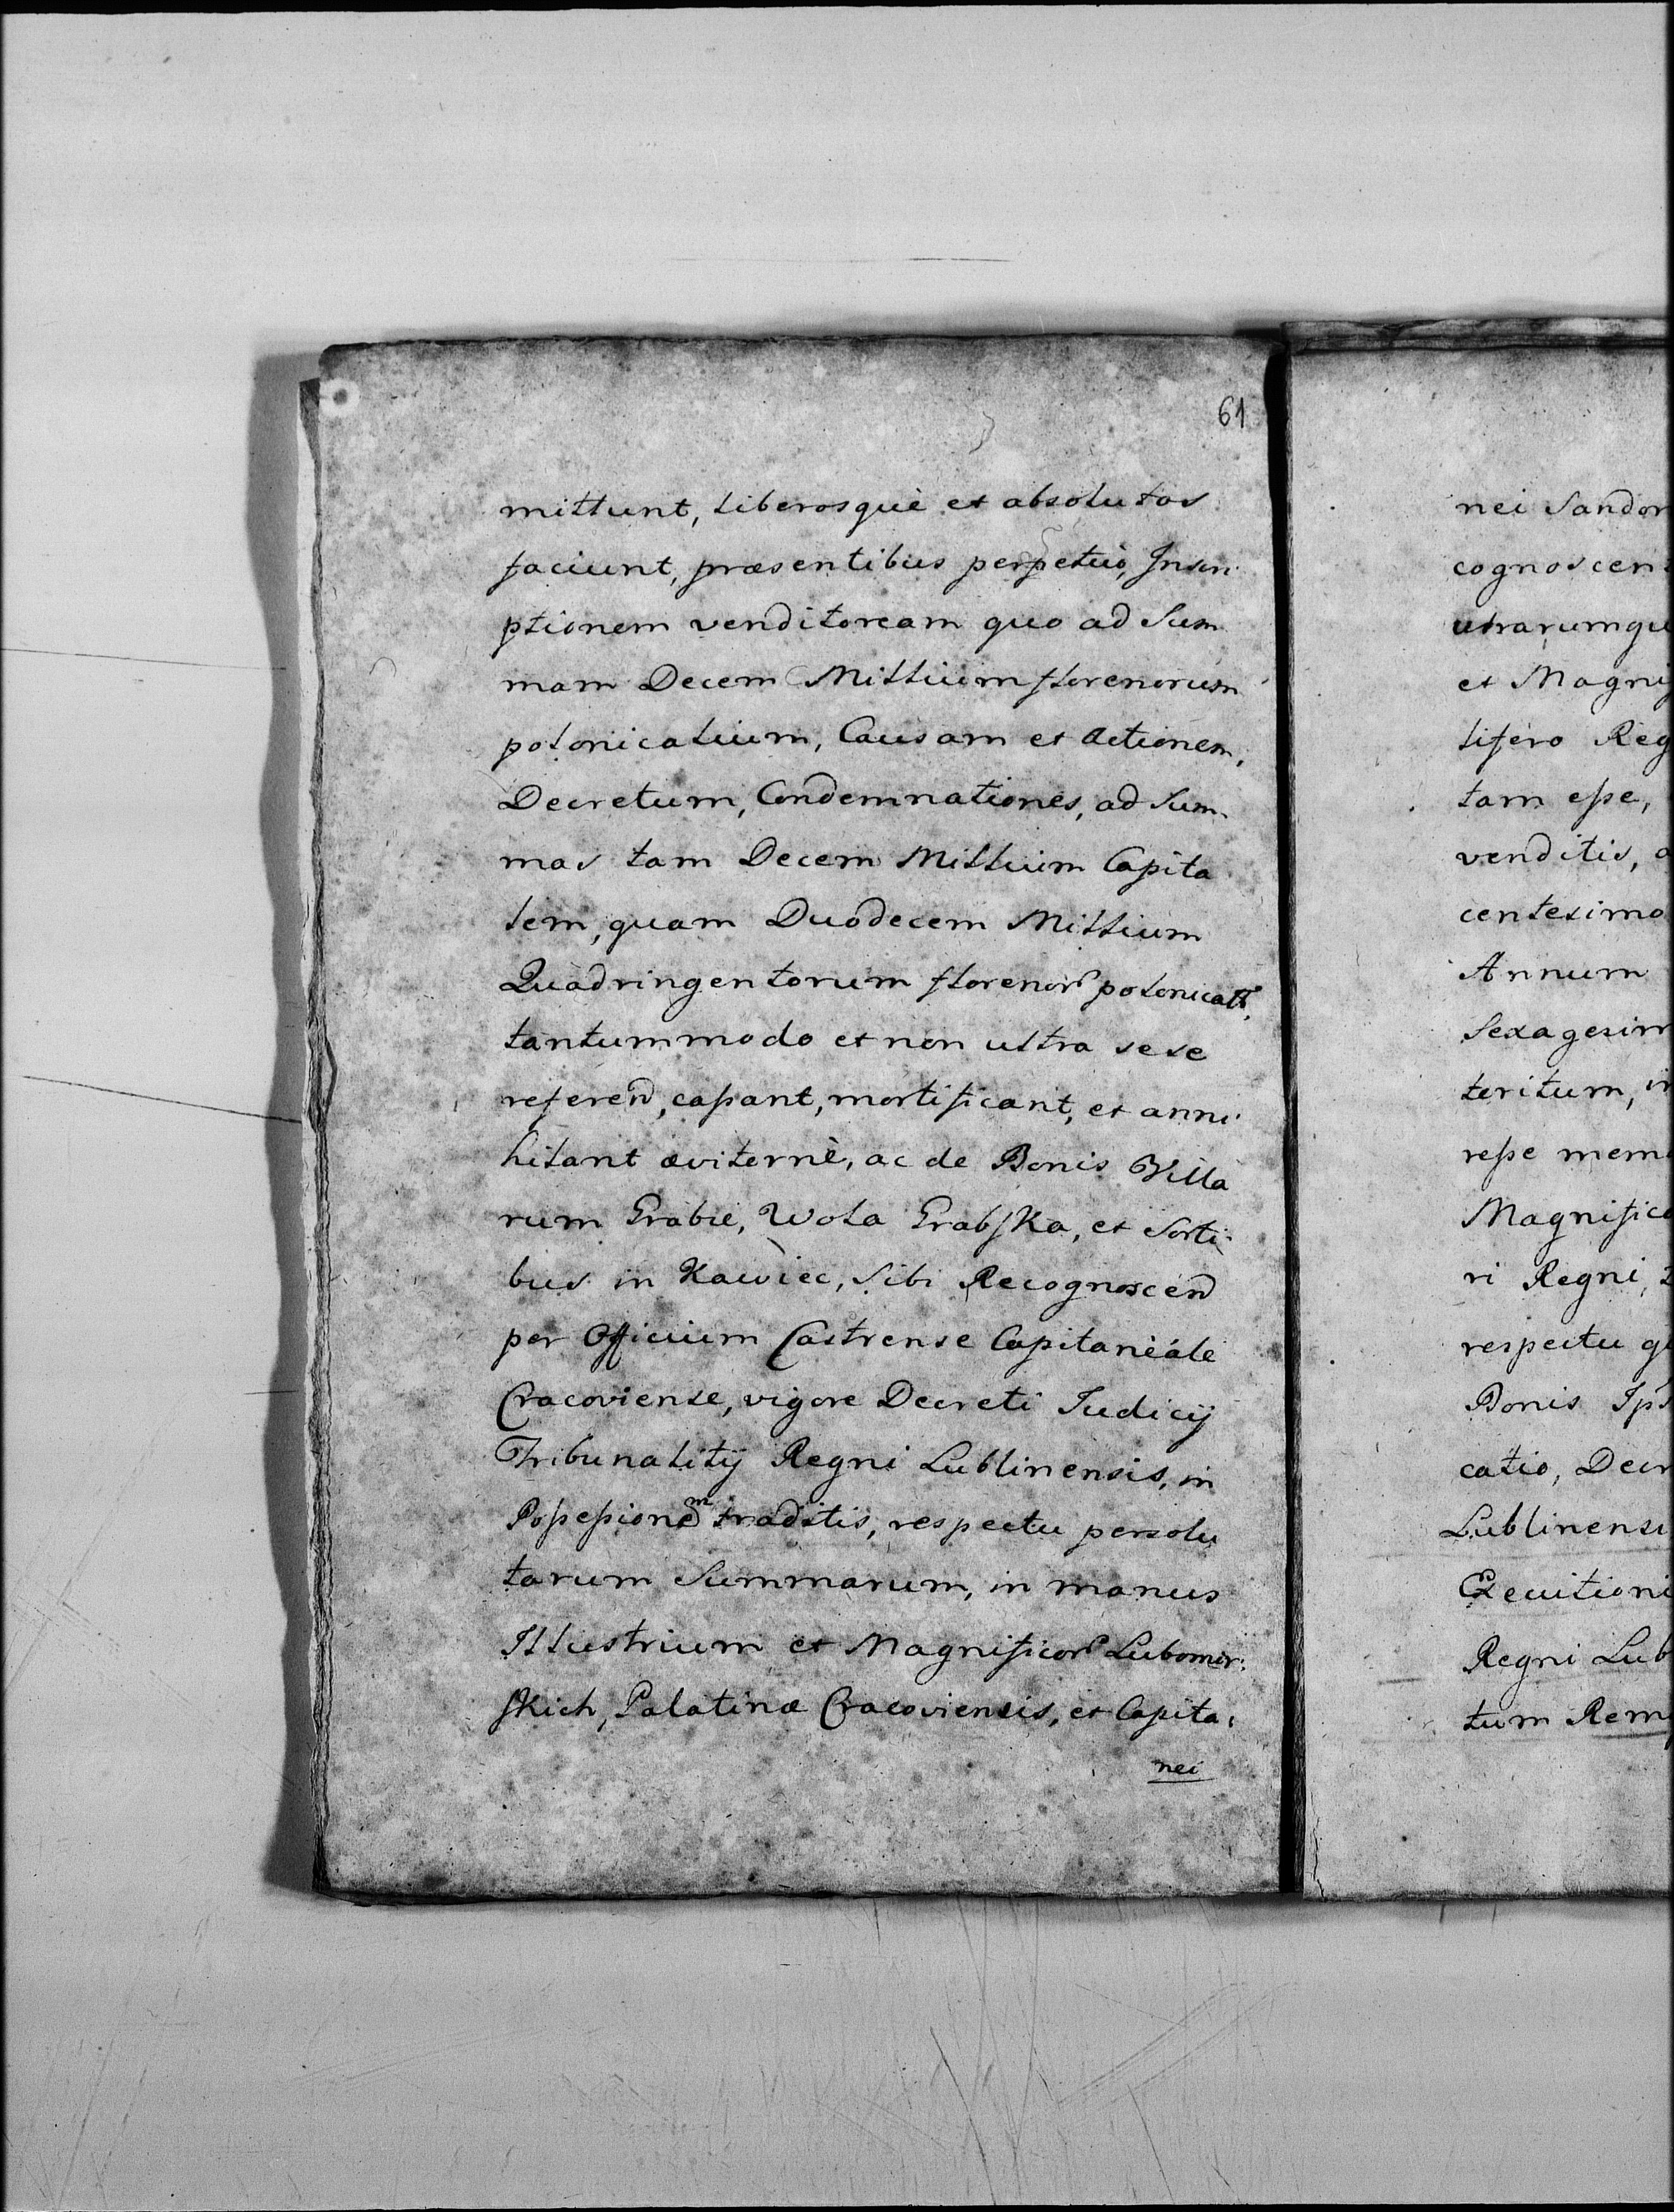 61
mittunt, liberosquè et absolutos
faciunt, præsentibus perpetuò, Inscri
ptionem venditoream quo ad Sum
mam Decem Millium florenorum
polonicalium, Causam et Actionem,
Decretum, Condemnationes, ad Sum
mas tam Decem Millium Capita
lem, quam Duodecem Millium
Quadringentorum florenor polonicall,
tantummodo et non ultra sese
referen, cassant, mortificant, et anni
hilant æviternè, ac de Bonis Villa
rum Grabie, Wola Grabska, et Sorti
bus in Kawiec, Sibi Recognoscen
per Officium Castrense Capitaneale
Cracoviense, vigore Decreti Judicij
Tribunalitij Regni Lublinensis, in
Possessionem traditis, respectu persolu
tarum Summarum, in manus
Illustrium et Magnificor Lubomir:
skich, Palatinæ Cracoviensis, et Capita,
nei
nei Sandom
cognoscen
utrarumqu
et Magnif
lifero Reg
tam esse,
venditis, a
centesimo
Annum
Sexagesim
teritum, in
resse mem
Magnifico
ri Regni,
respectu qu
Bonis Ips
catio, Decr
Lublinensi
Executioni
Regni Lub
tum Rem